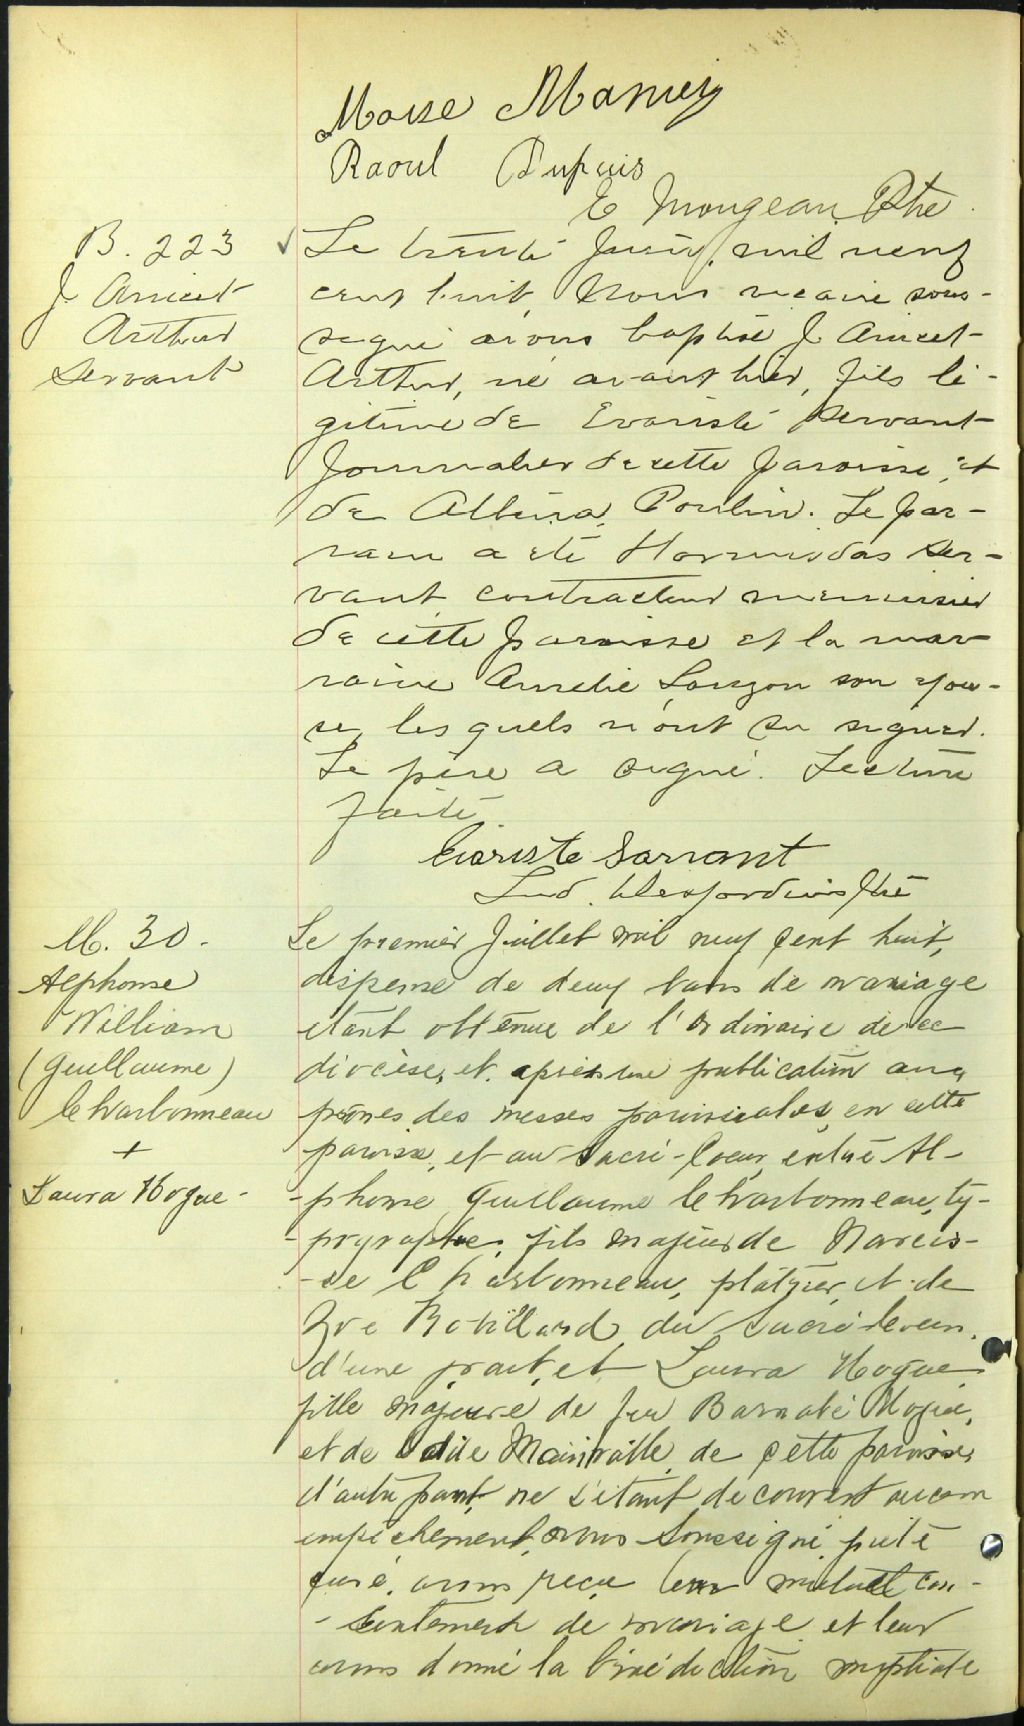 Moise
Raoul Dupuis
E Mongeau Ptre
B. 223
J. Anicet
Arthur
Servant
Le trente Juin, mil neuf
cent huit, Nous vicaire sous-
signé avons baptisé J. Anicet
Arthur, né avant hier, fils lé-
gitime de Evariste Servant
Journalier de cette paroisse et
de Albina Poulin. Le par-
rain a été Hormisdas Ser-
vant contracteur menuisier
de cette paroisse et la mar-
raine Amélie Lauzon son épou-
se, les quels n'ont su signer.
Le père a signé. Lecture
faite.
Evariste Sarvant
Lud. Desjardins Ptre
M. 30.
Alphonse
William
(Guillaume)
Charbonneau
+
Laura Hogue -
Le premier Juillet mil neuf cent huit,
dispense de deux bans de mariage
étant obtenue de l'Ordinaire de ce
diocèse, et après une publication aux
prônes des messes paroissiales en cette
paroisse, et au Sacré-Coeur, entre Al-
-phonse Guillaume Charbonneau, ty-
-pographe, fils majeur de Narcis-
-se Charbonneau, plâtrier, et de
Zoé Robillard du Sacré Coeur,
d'une part, et Laura Hogue
fille majeure de feu Barnabé Hogue,
et de Odile Mainville de cette paroisse,
d'autre part, ne s'étant découvert aucun
empêchement, nous soussigné, prêtre
curé, avons reçu leur mutuel con-
-sentement de mariage et leur
avons donné la bénédiction nuptiale